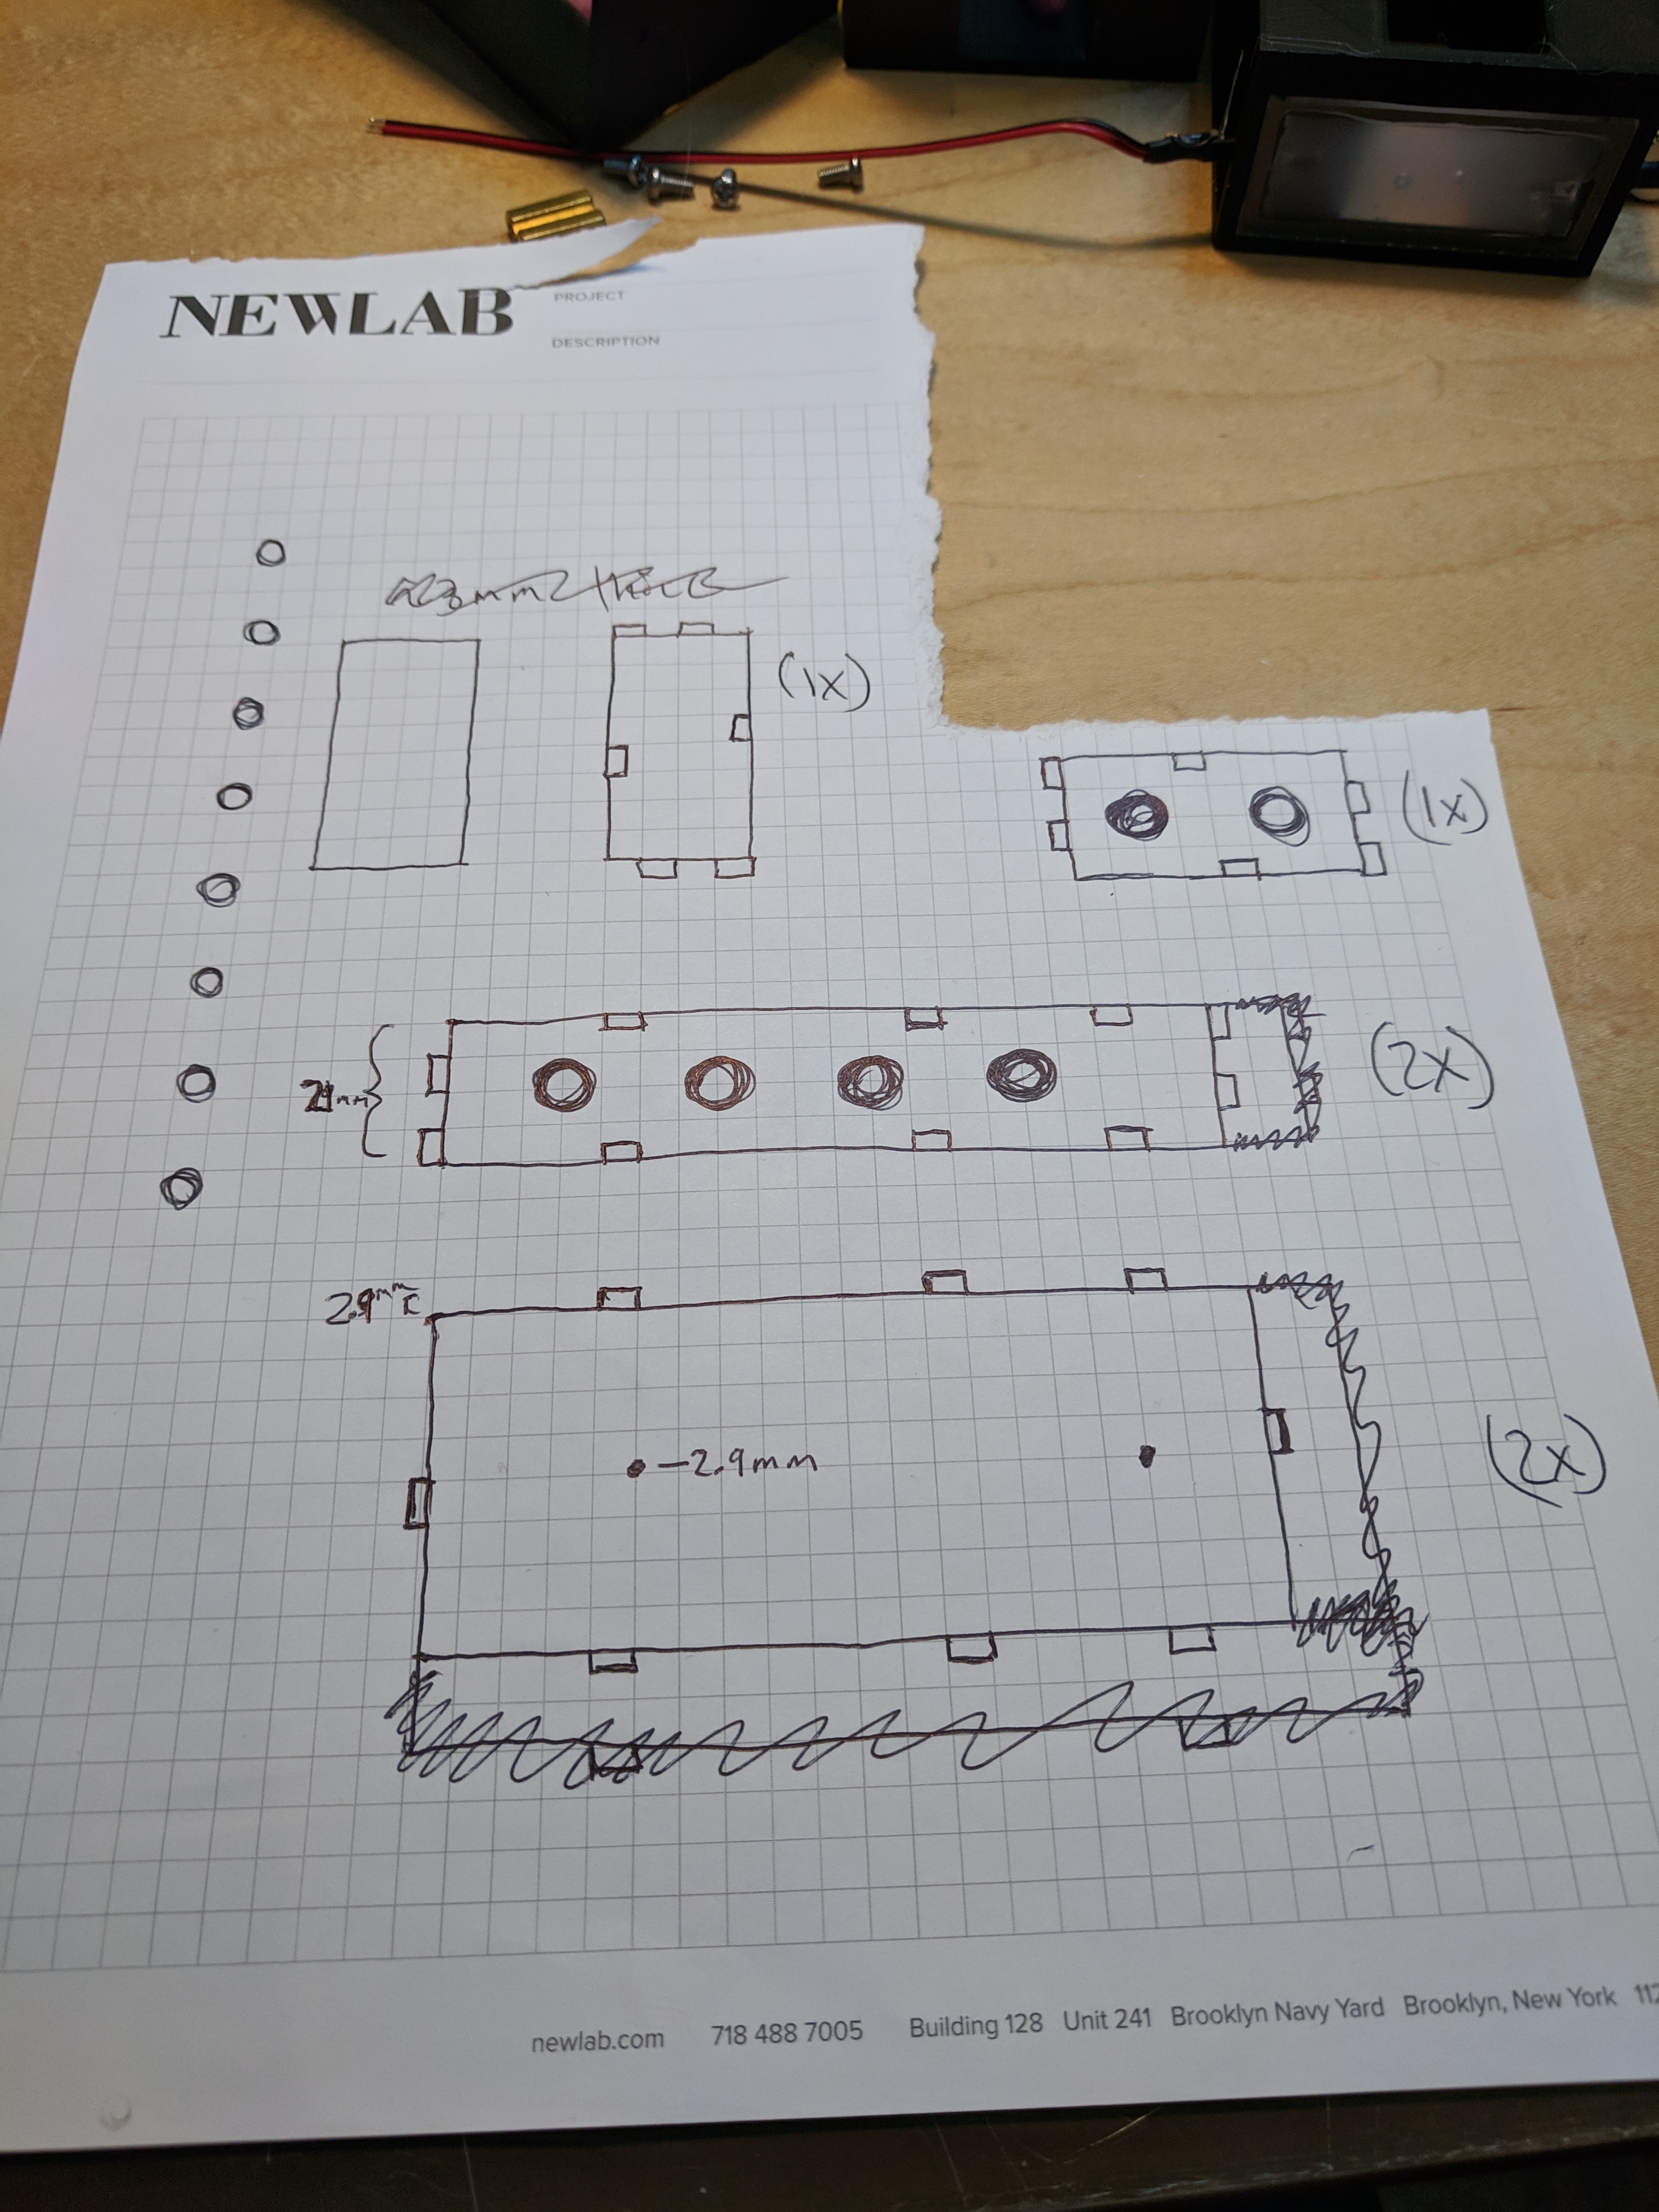 NEWLAB
PROJECT
DESCRIPTION
(1x)
(1x)
21mm
(2x)
2.9mm
-2.9mm
(2x)
newlab.com 718 488 7005 Building 128 Unit 241 Brooklyn Navy Yard Brooklyn, New York 112